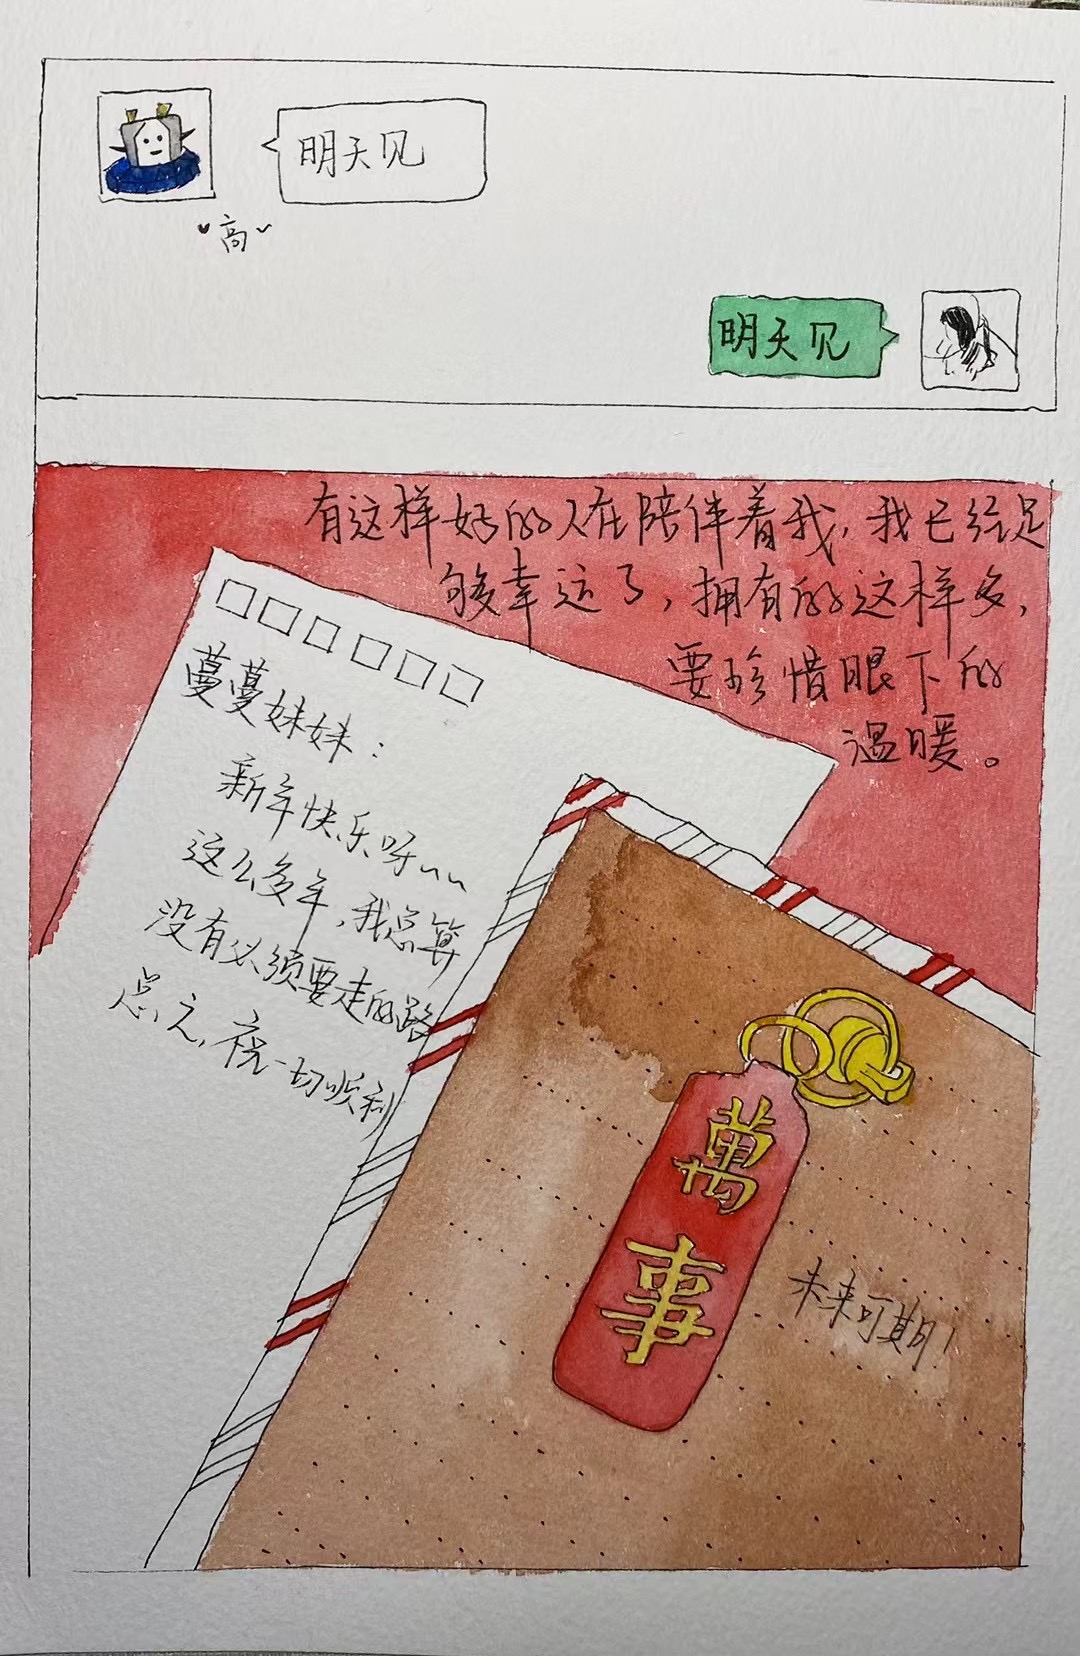 明天见
高
明天见
有这样好的人在陪伴着我，我已经足
够幸运了，拥有的这样多，
要珍惜眼下的
温暖。
蔓蔓妹妹：
新年快乐呀~~
这么多年，我总算
没有必须要走的路
总之，祝一切顺利
萬
事
未来可期！